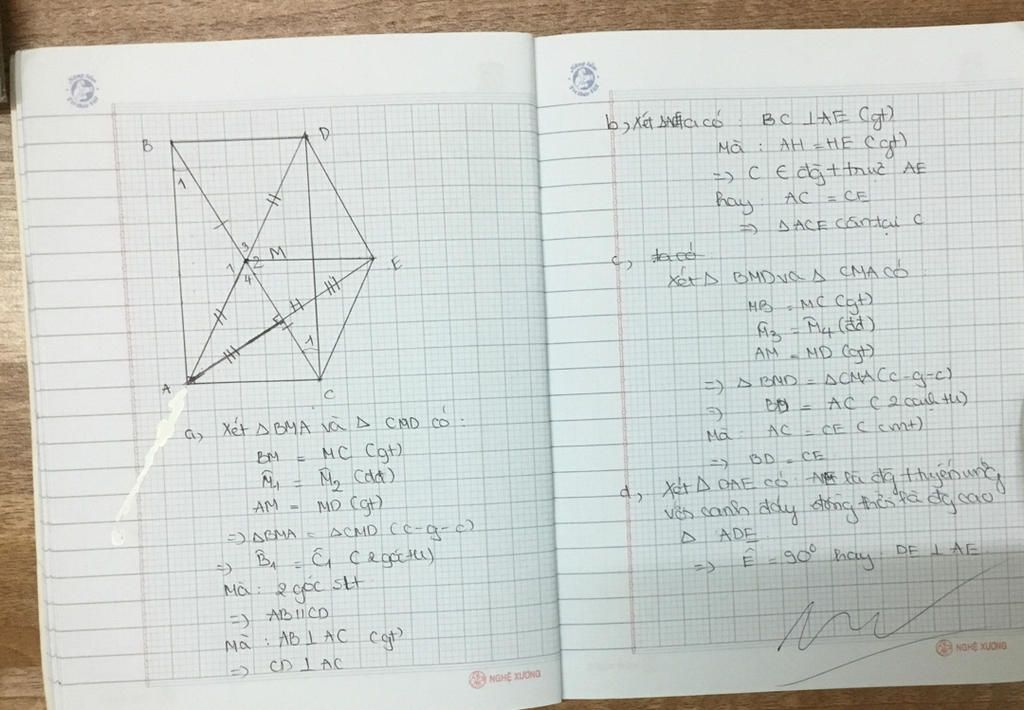 B
D
1
3
1
2
M
4
E
1
A
C
a, Xét ΔBMA và Δ CMD có:
BM = MC (gt)
M̂1 = M̂2 (đđ)
AM = MD (gt)
=> ΔBMA = ΔCMD (c-g-c)
=> B̂1 = Ĉ1 (2 góc tư)
Mà: 2 góc slt
=> AB//CD
Mà: AB⊥AC (gt)
=> CD⊥AC
NGHỆ XƯƠNG
b, Xét có: BC ⊥ AE (gt)
Mà: AH = HE (gt)
=> C ∈ đg trực AE
hay: AC = CE
=> ΔACE cân tại C
c, ta có
Xét Δ BMD và Δ CMA có
MB = MC (gt)
M̂3 = M̂4 (đđ)
AM = MD (gt)
=> Δ BMD = ΔCMA (c-g-c)
=> BD = AC (2 cạnh tư)
Mà: AC = CE (cmt)
=> BD = CE
d, Xét Δ DAE có là đg tuyến ứng
với cạnh đáy đồng thời là đg cao
Δ ADE
=> Ê = 90° hay: DE ⊥ AE
NGHỆ XƯƠNG